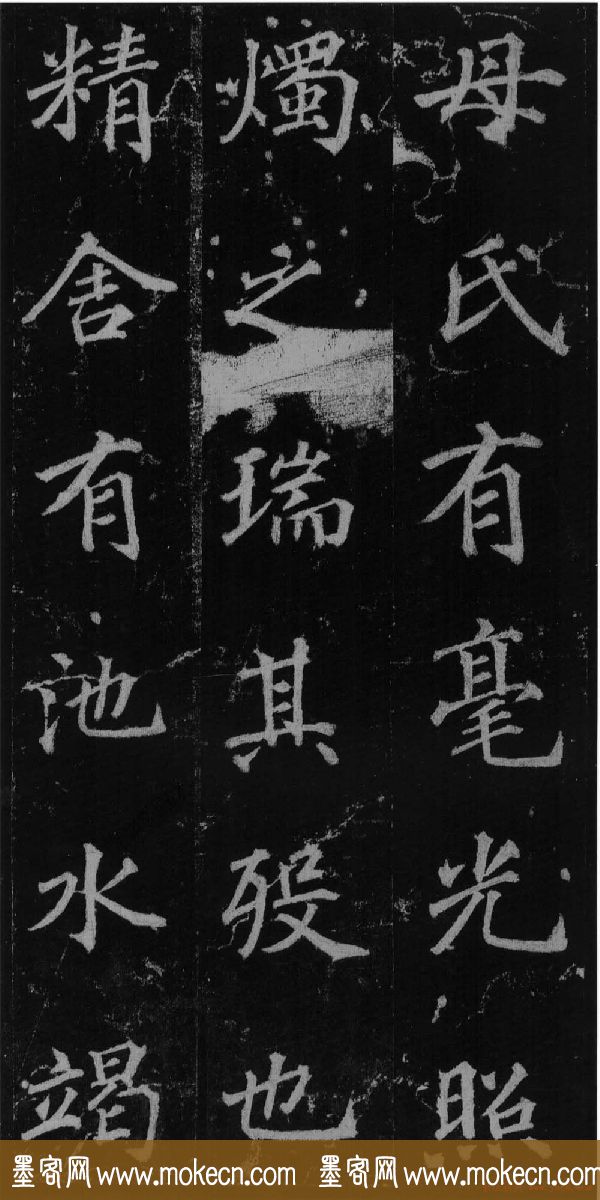 母氏有毫光照
燭之瑞其歿也
精舍有池水竭
墨客网 www.mokecn.com 墨客网 www.mokecn.com